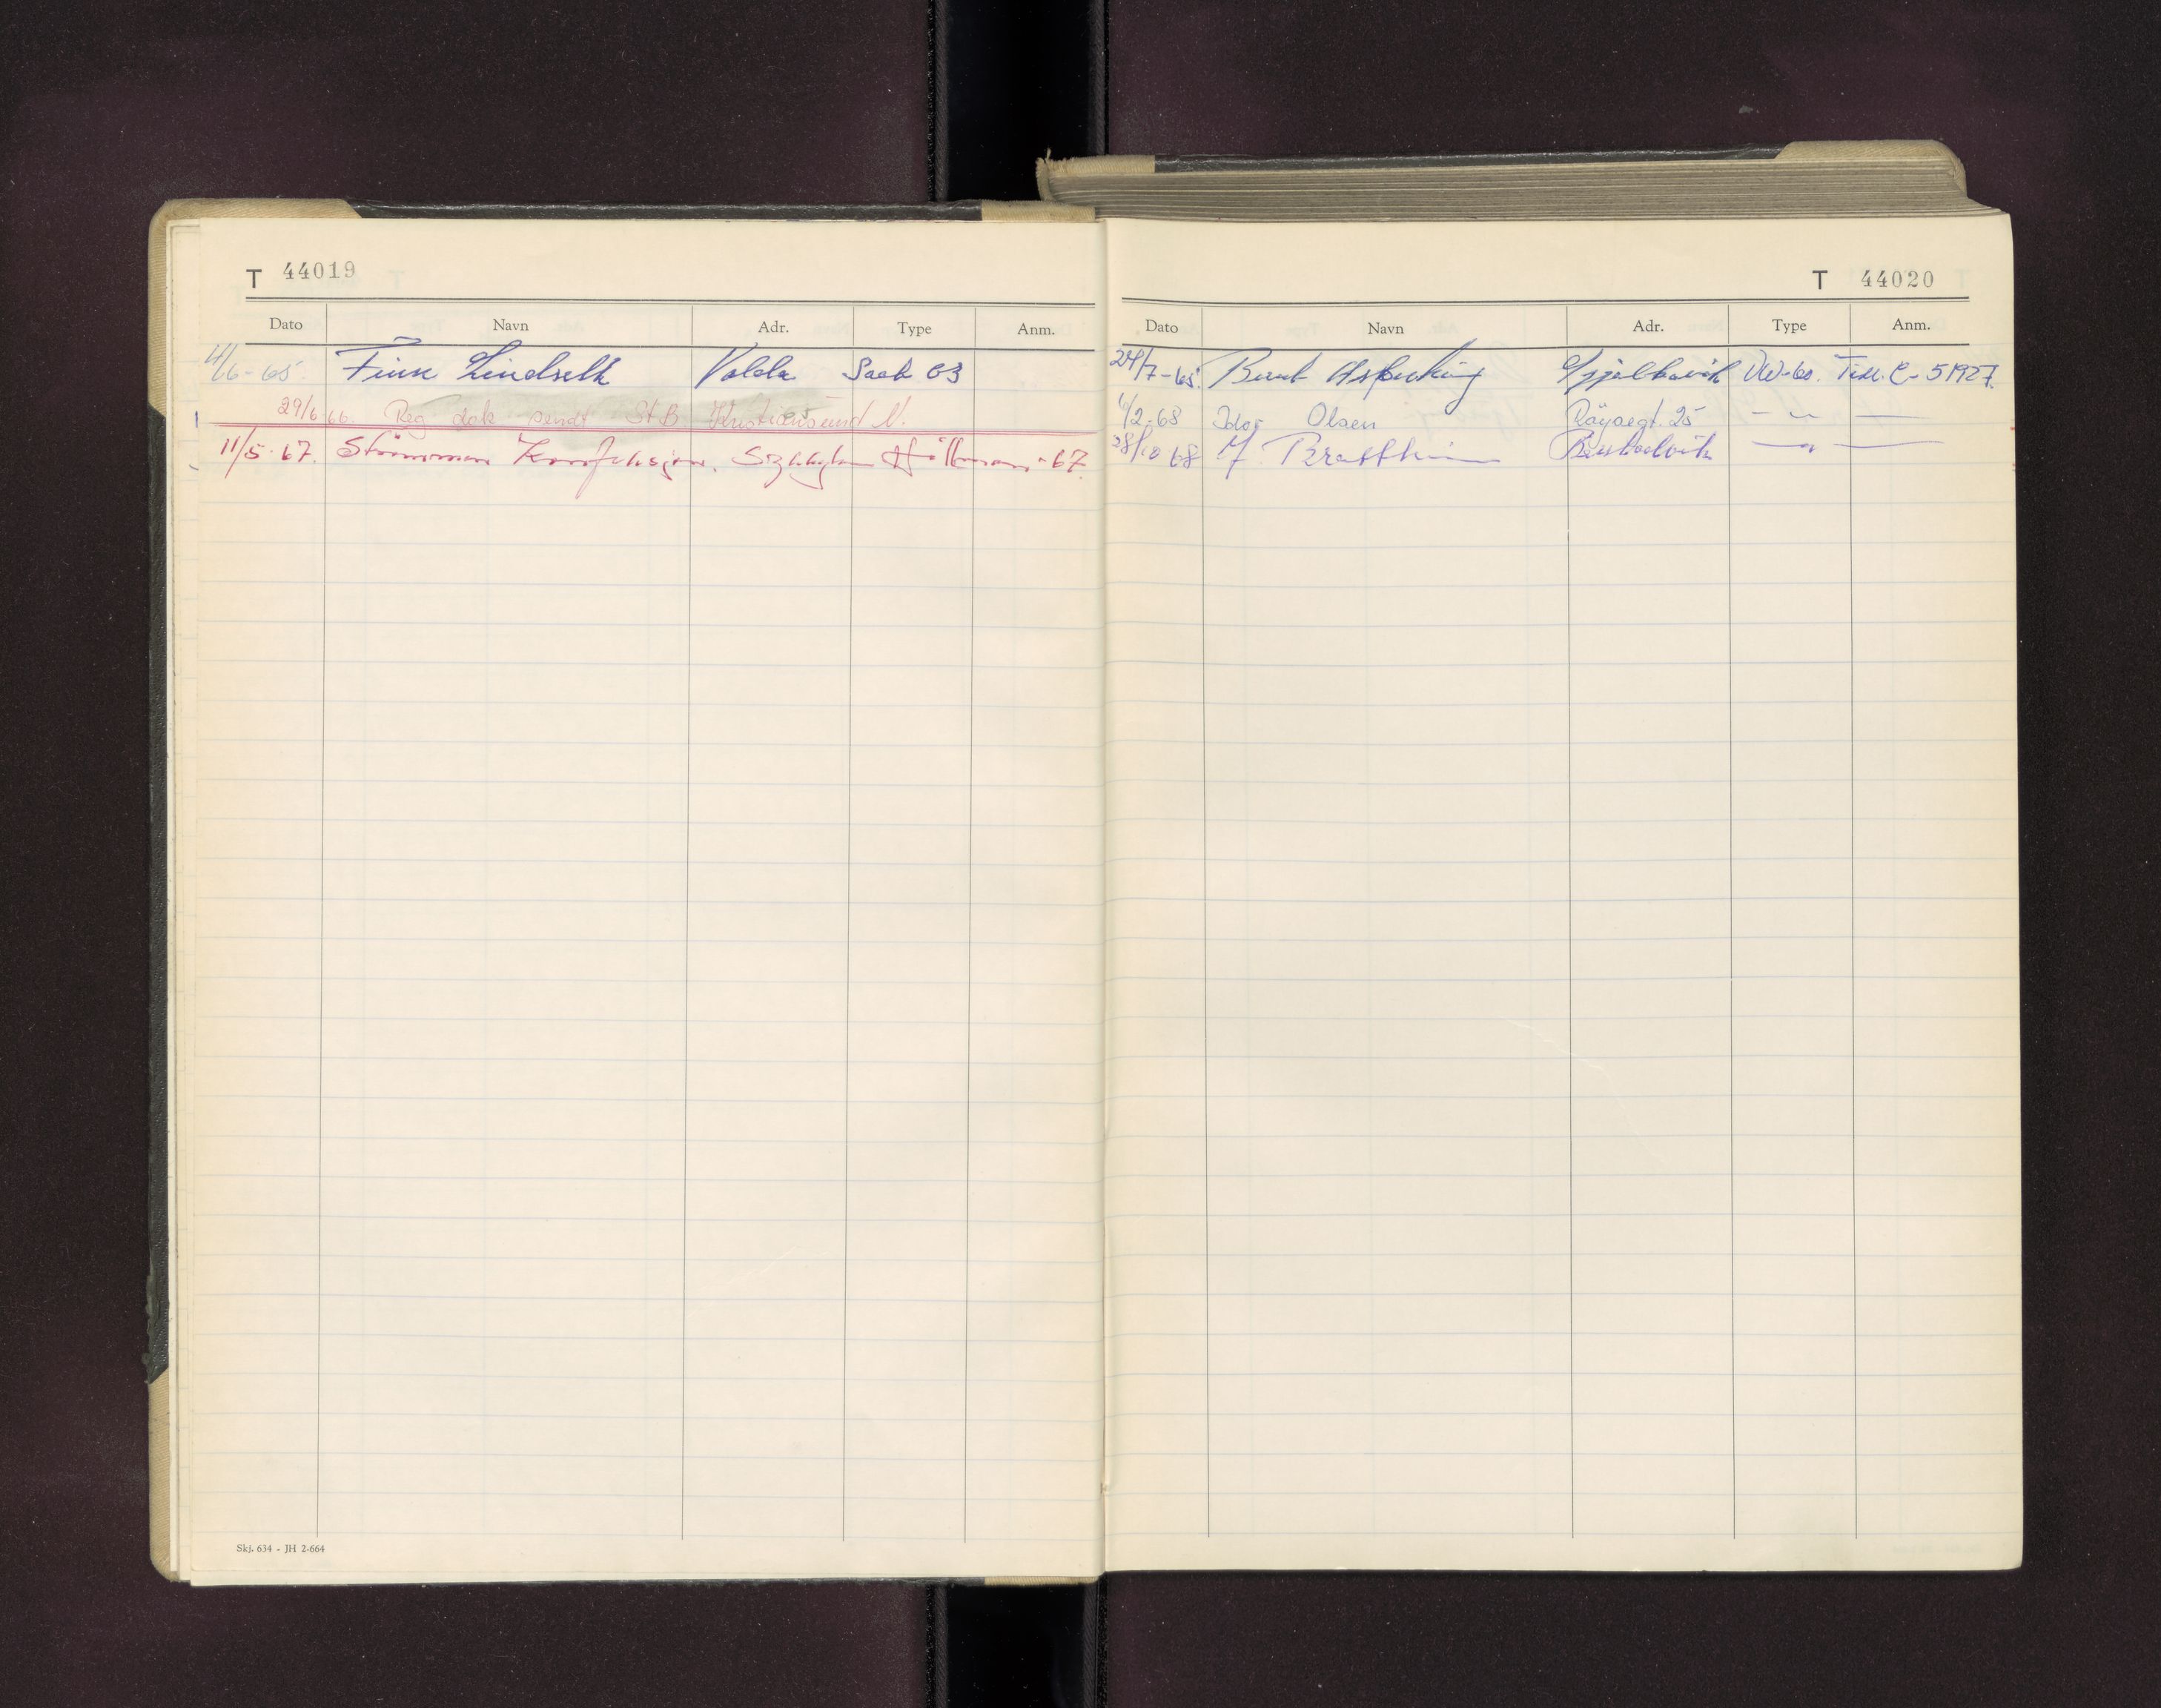 T 44019
Dato Navn Adr. Type Anm.
11/6-65 Finn Lindseth Volda Saab 63
29/6 66. Reg dok sendt St.B Kristiansund N.
11/5-67. Strömman Konfeksjon. Hillman-67.
Skj. 634 - JH 2-664
T 44020
Dato Navn Adr. Type Anm.
24/7-65 Bernt Gjelkavik VW-60. Tidl. C-51927.
6/2-68 Idar Olsen 25 - " -
28/10 68 - " -